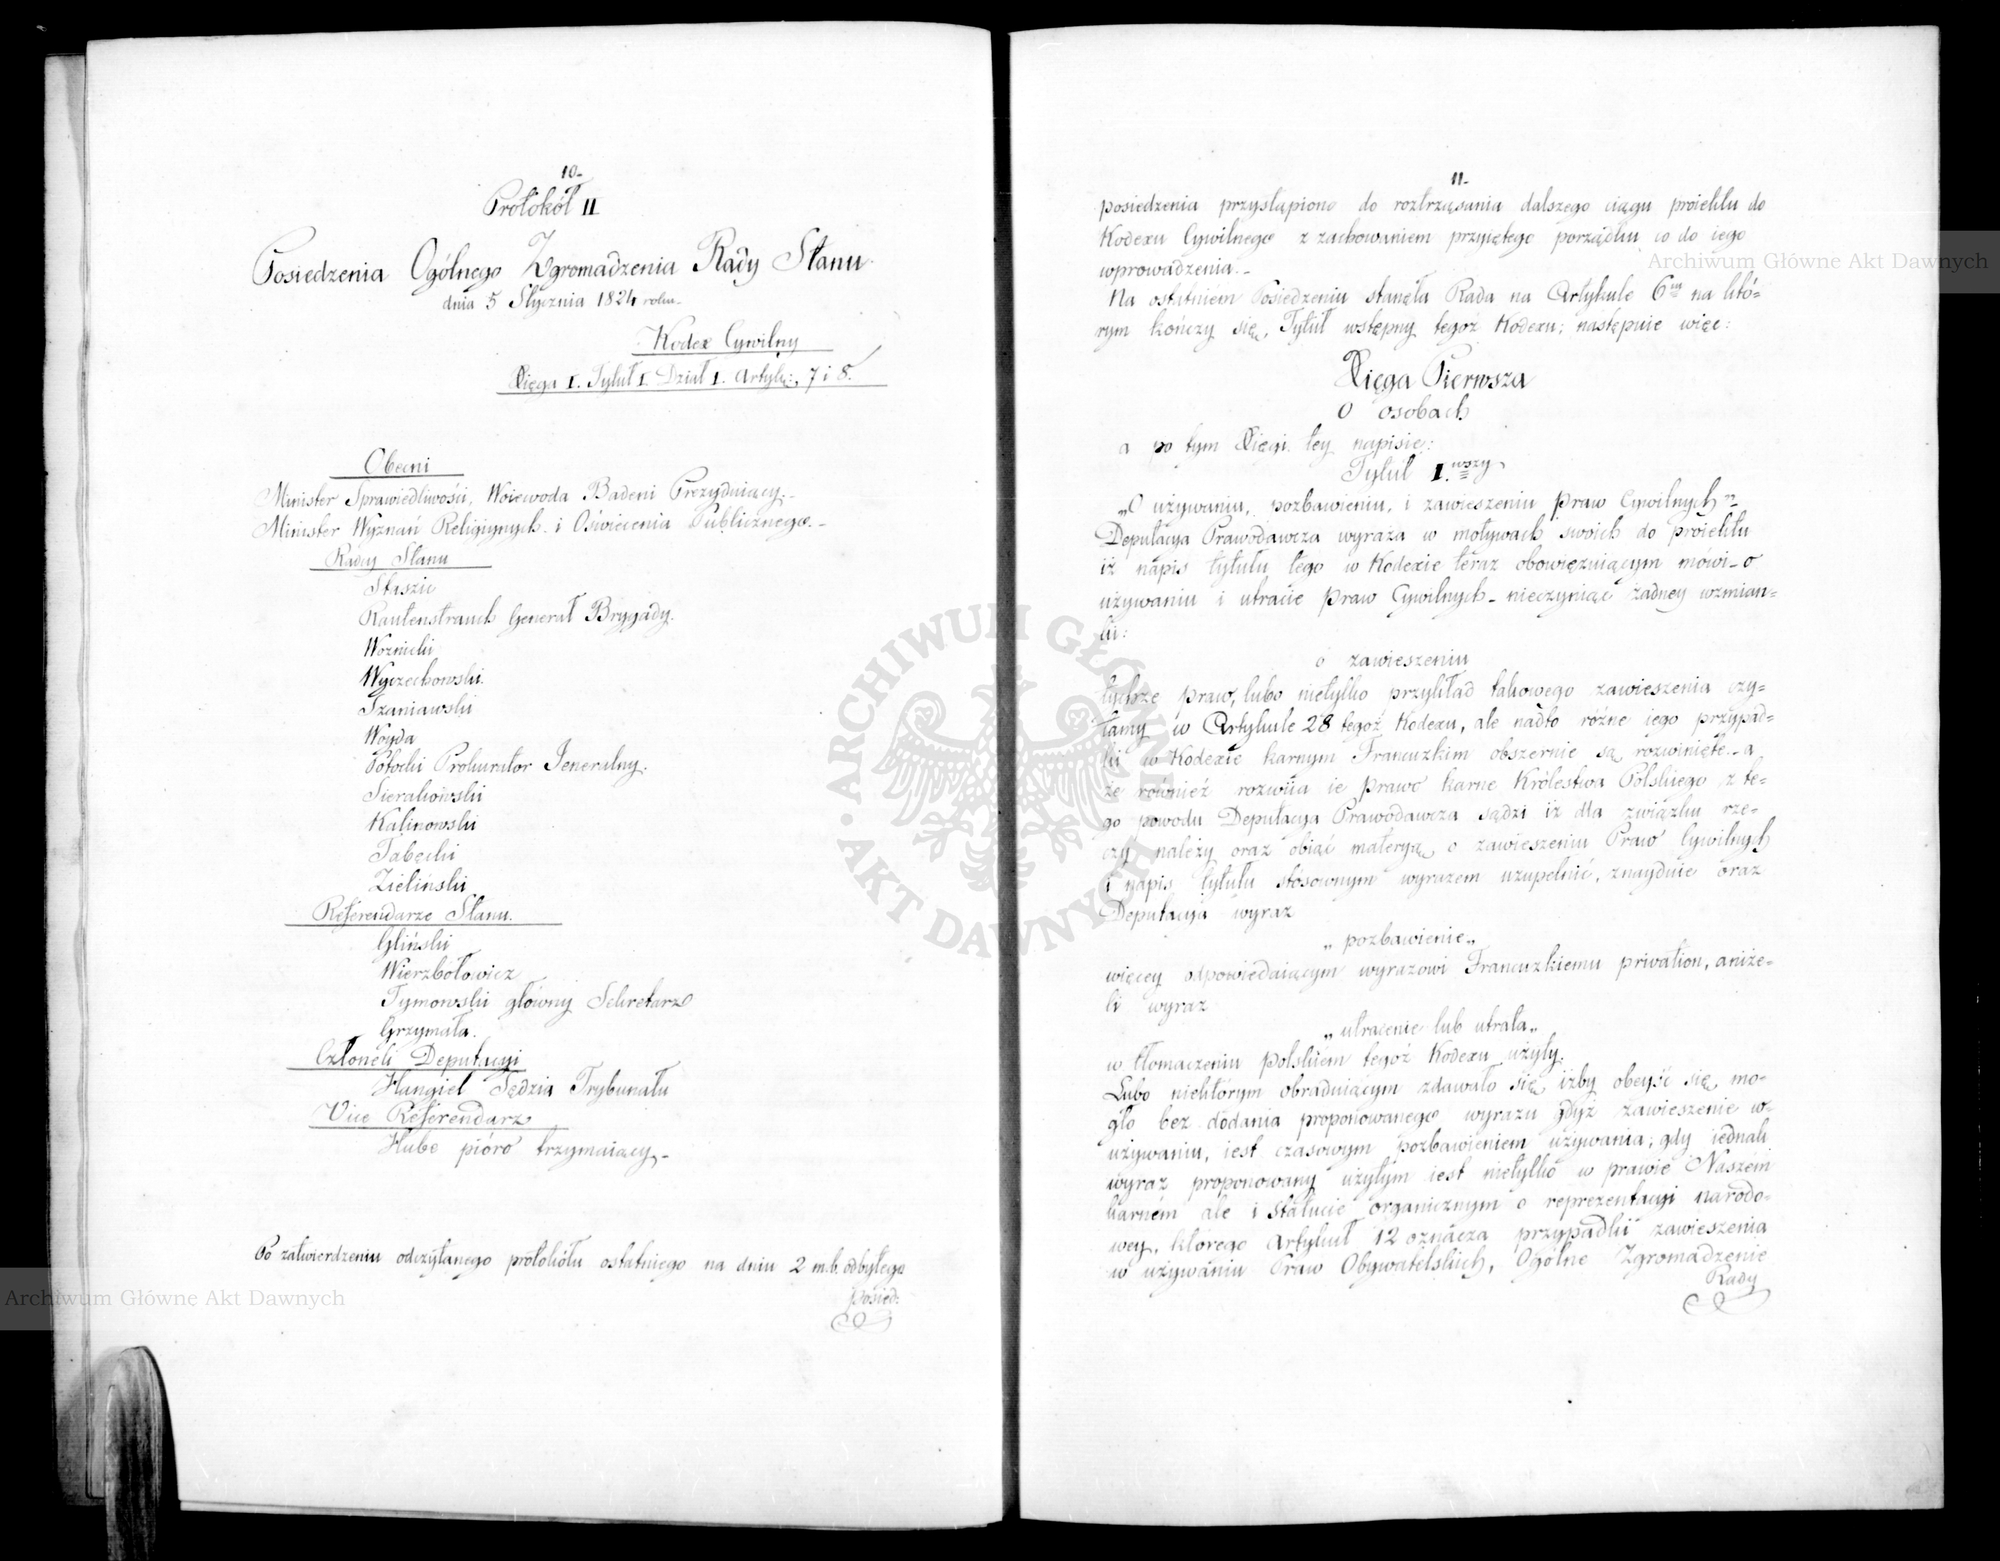 10-
Protokół II
Posiedzenia Ogólnego Zgromadzenia Rady Stanu
dnia 5 Stycznia 1824 roku
Kodex Cywilny
Xięga I. Tytuł I. Dział I. Artyk: 7 i 8.
Obecni
Minister Sprawiedliwości, Woiewoda Badeni Prezyduiący.-
Minister Wyznań Religiynych i Oświecenia Publicznego.-
Radcy Stanu
Staszic
Rautenstrauch Generał Brygady.
Woźnicki
Wyczechowski
Szaniawski
Woyda
Potocki Prokurator Jeneralny.
Sierakowski
Kalinowski
Tabęcki
Zieliński
Referendarze Stanu.
Gliński
Wierzbołowicz
Tymowski główny Sekretarz
Grzymała.
Członki Deputacyi
Hangiel Sędzia Trybunału
Vice Referendarz
Hube pióro trzymaiący.-
Po zatwierdzeniu odczytanego protokółu ostatniego na dniu 2 m.b. odbytego
Posied:
11-
posiedzenia przystąpiono do roztrząsania dalszego ciągu proiektu do
Kodexu Cywilnego z zachowaniem przyiętego porządku co do iego
wprowadzenia.-
Na ostatniém Posiedzeniu stanęła Rada na Artykule 6ym na któ-
rym kończy się, Tytuł wstępny tegoż Kodexu; następuie więc:
Xięga Pierwsza
O osobach
a po tym Xięgi tey napisie:
Tytuł I.wszy
„O używaniu, pozbawieniu, i zawieszeniu Praw Cywilnych"
Deputacya Prawodawcza wyraża w motywach swoich do proiektu
iż napis tytułu tego w Kodexie teraz obowięzuiącym mówi - o
używaniu i utracie Praw Cywilnych - nieczyniąc żadney wzmian-
ki:
o zawieszeniu
tychże praw, lubo nietylko przykład takowego zawieszenia czy-
tamy w Artykule 28 tegoż Kodexu, ale nadto różne iego przypad-
ki w Kodexie karnym Francuzkim obszernie są rozwinięte - a
że również rozwiia ie prawo karne Królestwa Polskiego, z te-
go powodu Deputacya Prawodawcza sądzi iż dla związku rze-
czy należy oraz obiąć materyą o zawieszeniu Praw Cywilnych
i napis tytułu stosownym wyrazem uzupełnić, znayduie oraz
Deputacya wyraz
„pozbawienie„
więcey odpowiedaiącym wyrazowi Francuzkiemu privation, aniże-
li wyraz
„utracenie lub utrata„
w tłomaczeniu polskiém tegoż Kodexu użyty.
Lubo niektórym obraduiącym zdawało się iżby obeyść się mo-
gło bez dodania proponowanego wyrazu gdyż zawieszenie w-
używaniu, iest czasowym pozbawieniem używania; gdy iednak
wyraz proponowany użytym iest nietylko w prawie Naszém
karném ale i Statucie organicznym o reprezentacyi narodo-
wey, którego Artykuł 12 oznacza przypadki zawieszenia
w używaniu Praw Obywatelskich, Ogólne Zgromadzenie
Rady
ARCHIWUM GŁÓWNE AKT DAWNYCH
Archiwum Główne Akt Dawnych
Archiwum Główne Akt Dawnych